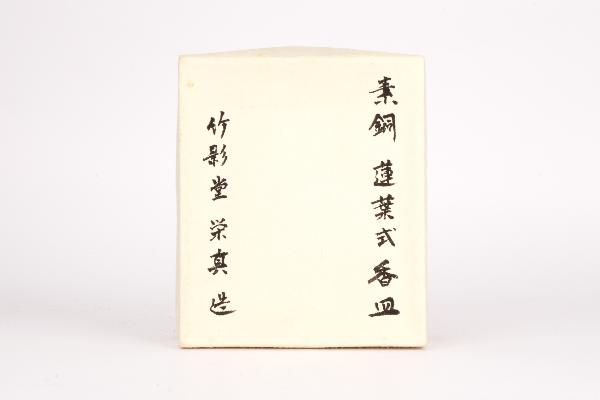 素銅 蓮葉式香皿
竹影堂 栄真 造